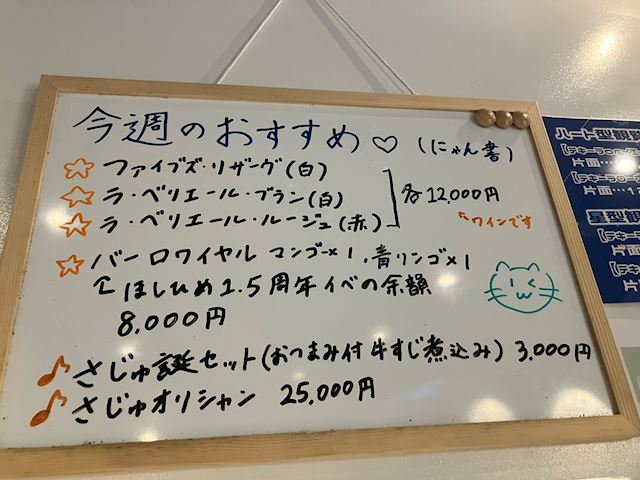 今週のおすすめ♡(にゃん書)
☆ ファイブズ・リザーヴ(白)
☆ ラ・ベリエール・ブラン(白)
☆ ラ・ベリエール・ルージュ(赤)
各12,000円
↖ワインです
☆ バーロワイヤル マンゴー×1.青リンゴ×1
↑ほしひめ1.5周年イベの余韻
8,000円
♪さじゅ誕セット(おつまみ付 牛すじ煮込み) 3,000円
♪さじゅオリシャン 25,000円
ハート型
片面
片面
星型
片面
片面